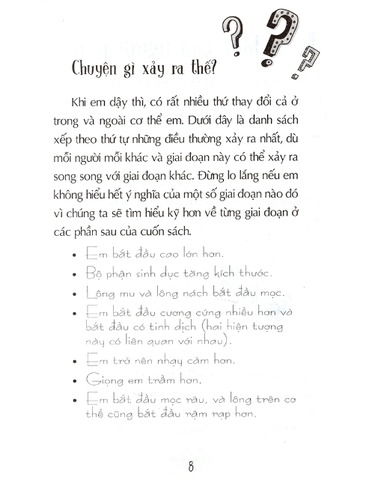 ? ? ?
Chuyện gì xảy ra thế?
Khi em dậy thì, có rất nhiều thứ thay đổi cả ở
trong và ngoài cơ thể em. Dưới đây là danh sách
xếp theo thứ tự những điều thường xảy ra nhất, dù
mỗi người mỗi khác và giai đoạn này có thể xảy ra
song song với giai đoạn khác. Đừng lo lắng nếu em
không hiểu hết ý nghĩa của một số giai đoạn nào đó
vì chúng ta sẽ tìm hiểu kỹ hơn về từng giai đoạn ở
các phần sau của cuốn sách.
• Em bắt đầu cao lớn hơn.
• Bộ phận sinh dục tăng kích thước.
• Lông mu và lông nách bắt đầu mọc.
• Em bắt đầu cương cứng nhiều hơn và
bắt đầu có tinh dịch (hai hiện tượng
này có liên quan với nhau).
• Em trở nên nhạy cảm hơn.
• Giọng em trầm hơn.
• Em bắt đầu mọc râu, và lông trên cơ
thể cũng bắt đầu rậm rạp hơn.
8